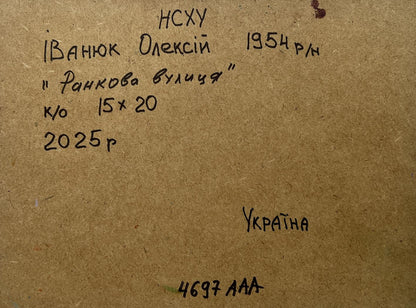 НСХУ
Іванюк Олексій 1954 р/н
"Ранкова вулиця"
к/о 15×20
2025р
Україна
4697 ААА